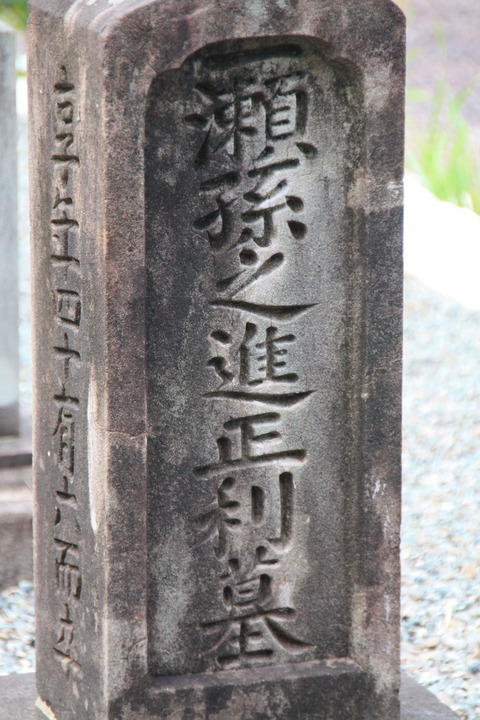 一瀬孫之進正利墓
年四十有六而卒